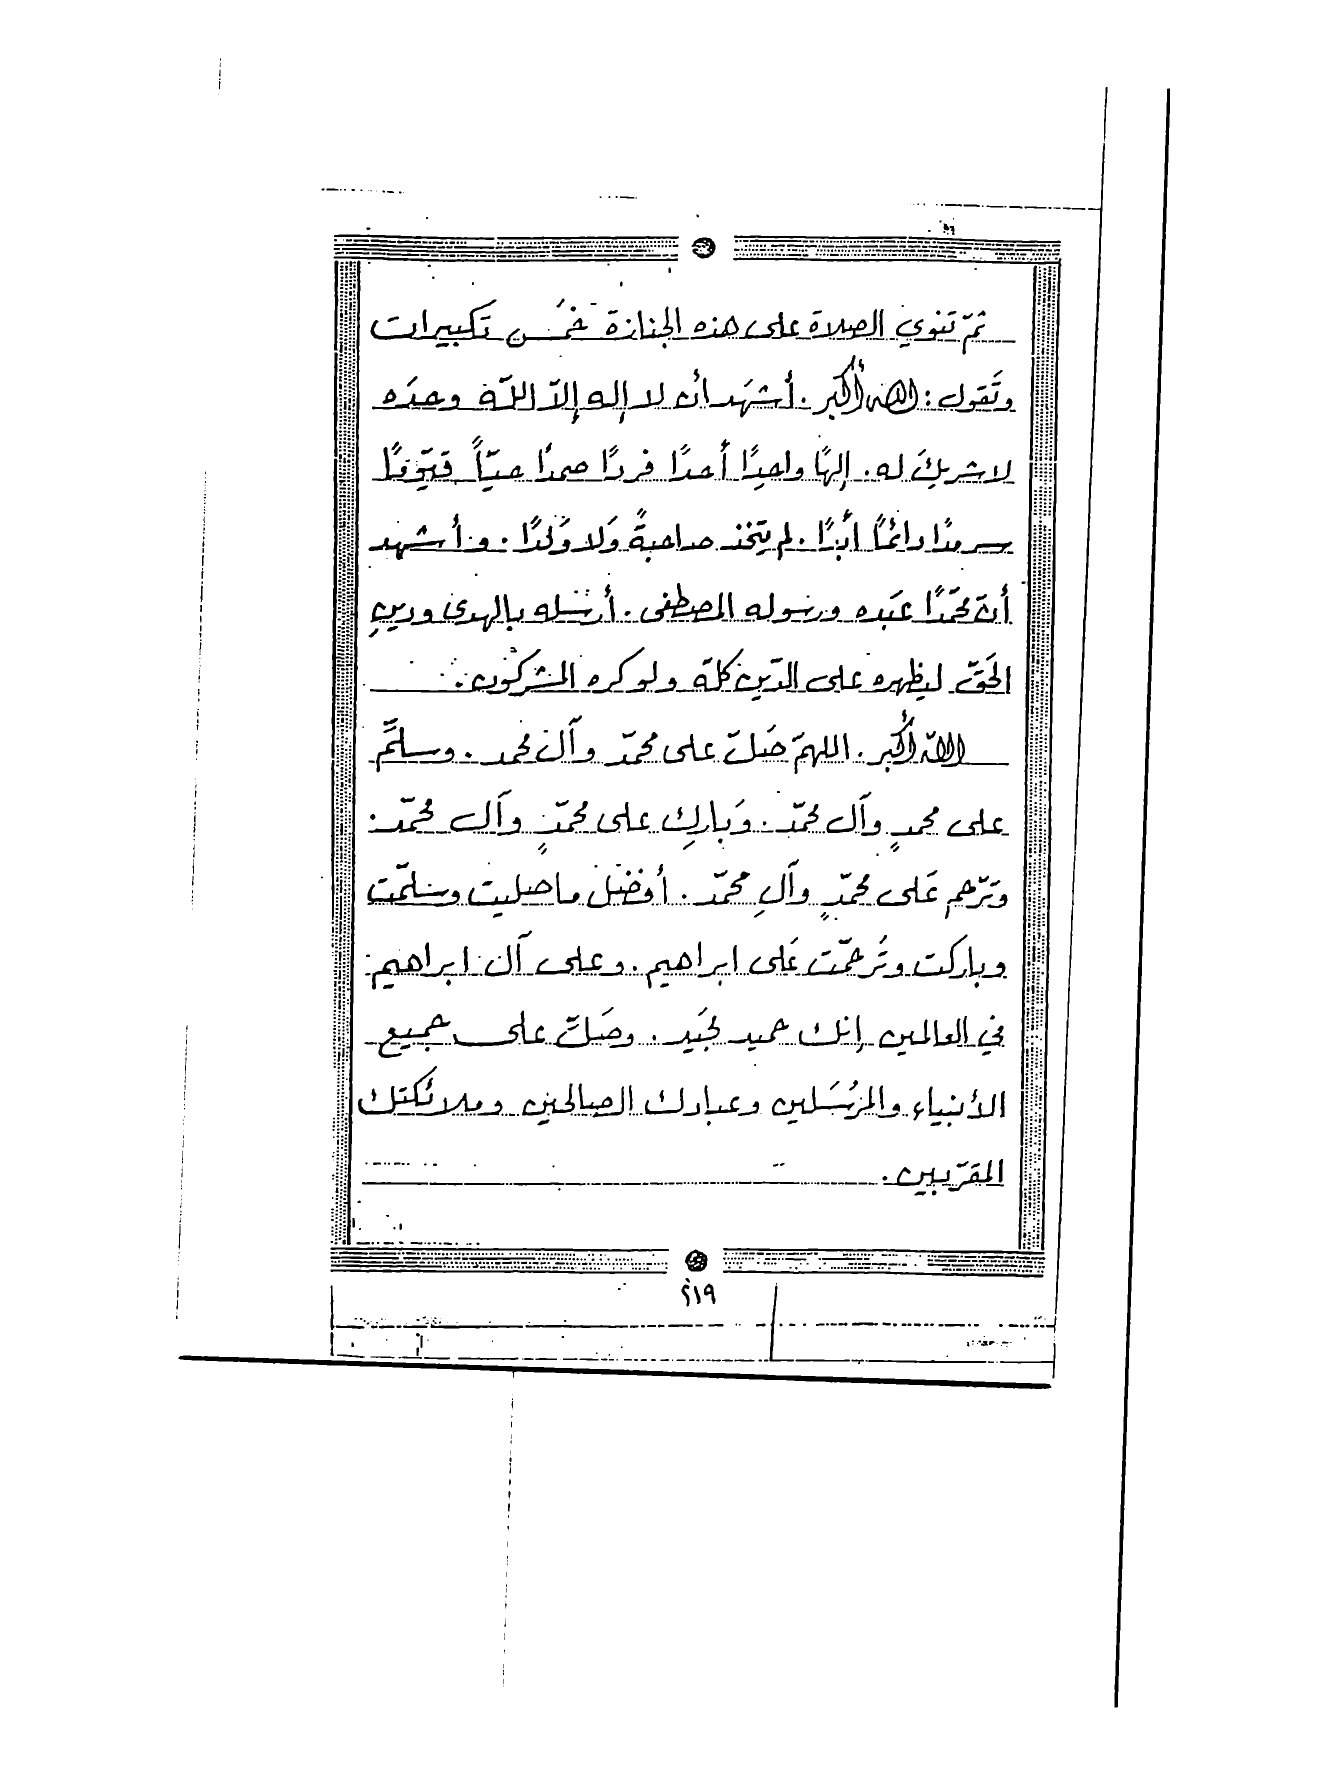 ثمّ تنوي الصلاة على هذه الجنازة خمُس تكبيرات
وتَقول : الله أُكبر . أُشهَد أن لا إله إلاّ اللّه وحدَه
لا شريكَ له . إلهًا واحِدًا أُحدًا فردًا صمدًا حيّاً قيّومًا
سرمدًا دائمًا أبدًا . لم يتخذ صاحبةً وَلا وَلدًا . وأُشهد
أنّ محمّدًا عبَده ورسوله المصطفى . أرسله بالهدى ودينِ
الحَقّ ليظهره على الدّين كلّه ولو كره المشركون .
اللّه أُكبر . اللهمّ صَلّ على محمّد وآل محمد . وسلمَّ
على محمدٍ وآل محمّد . وَباركِ على محمّدٍ وآل محمّد .
وتَرّحم عَلى محمّدٍ وآلِ محمّد . أفضل ما صليت وسلّمت
وباركت وتَرحمّت عَلى ابراهيم . وعلى آل ابراهيم
في العالمين إنك حميد مجَيد . وصَلّ على جميع
الأنبياء والمرُسَلين وعبادك الصالحين وملائكتك
المقرّبين .